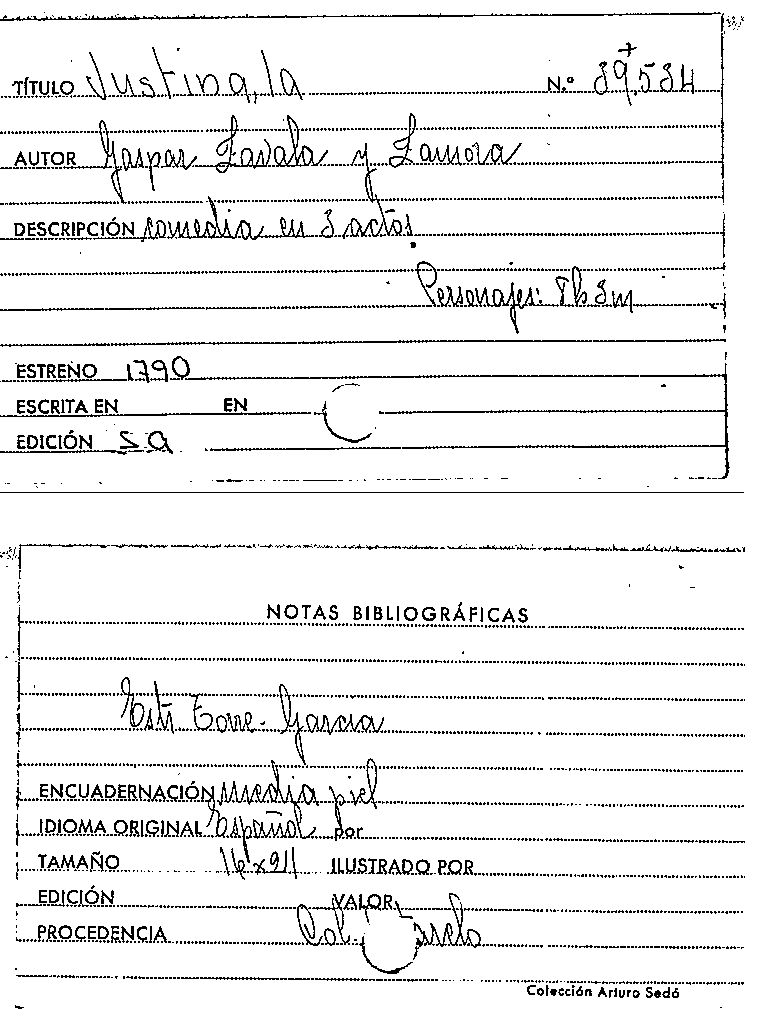 TÍTULO Justina, la N.º 39.534
AUTOR Gaspar Zavala y Zamora
DESCRIPCIÓN comedia en 3 actos.
Personajes: 8h 3m
ESTRENO 1790
ESCRITA EN EN
EDICIÓN sa
NOTAS BIBLIOGRÁFICAS
Estr Torre-García
ENCUADERNACIÓN media piel
IDIOMA ORIGINAL Español por
TAMAÑO ILUSTRADO POR
EDICIÓN VALOR
PROCEDENCIA Col.
Colección Arturo Sedó